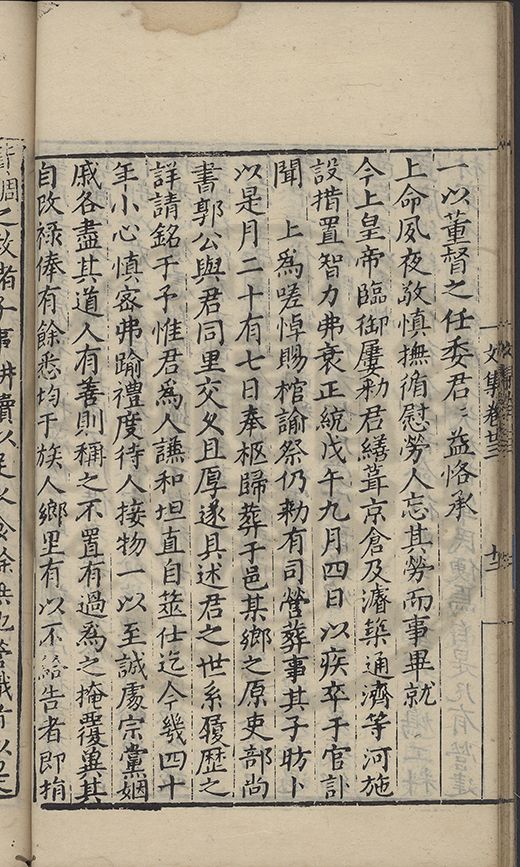 文集卷廿三
一以董督之任委君〻益恪承
上命夙夜敬慎撫循慰勞人忘其勞而事畢就
今上皇帝臨御屢勑君繕葺京倉及濬築通濟等河施
設措置智力弗衰正統戊午九月四日以疾卒于官訃
聞　上爲嗟悼賜棺諭祭仍勑有司營葬事其子昉卜
以是月二十有七日奉柩歸葬于邑某鄉之原吏部尚
書郭公與君同里交久且厚遂具述君之世系履歷之
詳請銘于予惟君爲人謙和坦直自筮仕迄今幾四十
年小心慎密弗踰禮度待人接物一以至誠處宗黨姻
戚各盡其道人有善則稱之不置有過爲之掩覆冀其
自改祿俸有餘悉均于族人鄉里有以不給告者即捐